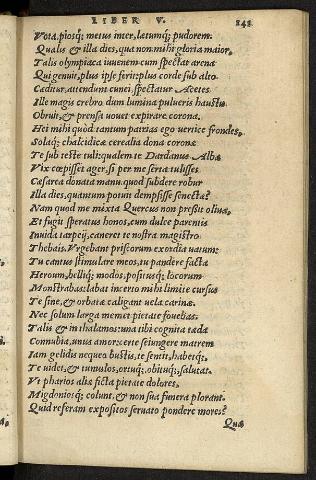 LIBER V. 141
Vota, piosq; metus inter, lætumq; pudorem.
Qualis & illa dies, qua non mihi gloria maior,
Talis olympiaca iuuenem cum spectat arena
Qui genuit, plus ipse ferit: plus corde sub alto
Cæditur, attendum cunei, spectatur Acetes
Ille magis crebro dum lumina pulueris haustu
Obruit, & prensa uouet expirare corona.
Hei mihi quòd tantum patrias ego uertice frondes,
Solaq; chalcidicæ cerealia dona coronæ
Te sub teste tuli: qualem te Dardanus Albæ
Vix cœpisset ager, si per me serta tulisses
Cæsarea donata manu. quod subdere robur
Illa dies, quantum potuit dempsisse senectæ?
Nam quod me mixta Quercus non pressit oliua,
Et fugit speratus honos, cum dulce parentis
Inuida tarpeij, caneret te nostra magistro
Thebais. Vrgebant priscorum exordia uatum:
Tu cantus stimulare meos, tu pandere facta
Heroum, bellíq; modos, positusq; locorum
Monstrabas: labat incerto mihi limite cursus
Te sine, & orbatæ caligant uela carinæ.
Nec solum larga memet pietate fouebas.
Talis & in thalamos: una tibi cognita tæda
Connubia, unus amor: certe seiungere matrem
Iam gelidis nequeo bustis, te sentit, habetq;,
Te uidet, & tumulos, ortuq; obituq;, salutat.
Vt pharios aliæ ficta pietate dolores,
Migdoniosq; colunt, & non sua funera plorant.
Quid referam expositos seruato pondere mores?
Quæ